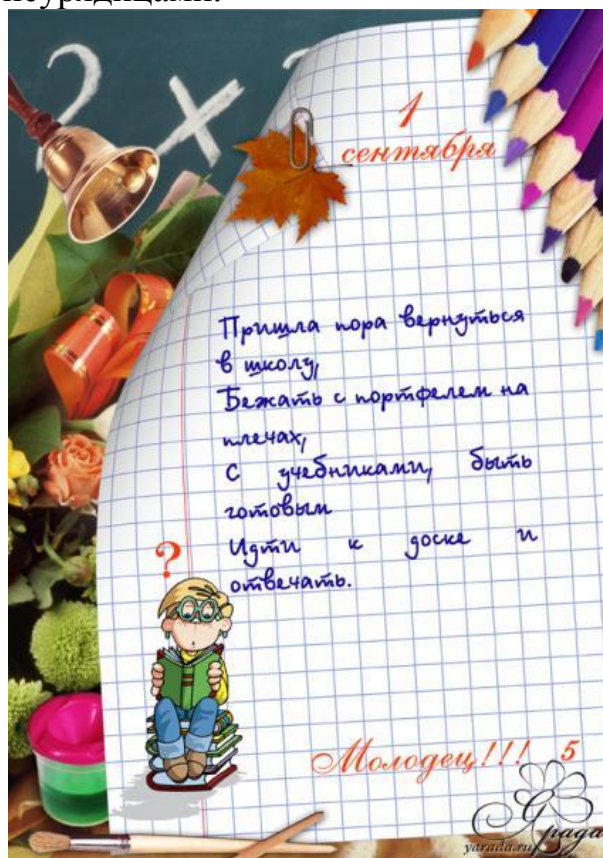 неурядицами.
2 ×
1
сентября
Пришла пора вернуться
в школу,
Бежать с портфелем на
плечах,
С учебниками, быть
готовым
Идти к доске и
отвечать.
?
Молодец!!! 5
Ярада
yarada.ru